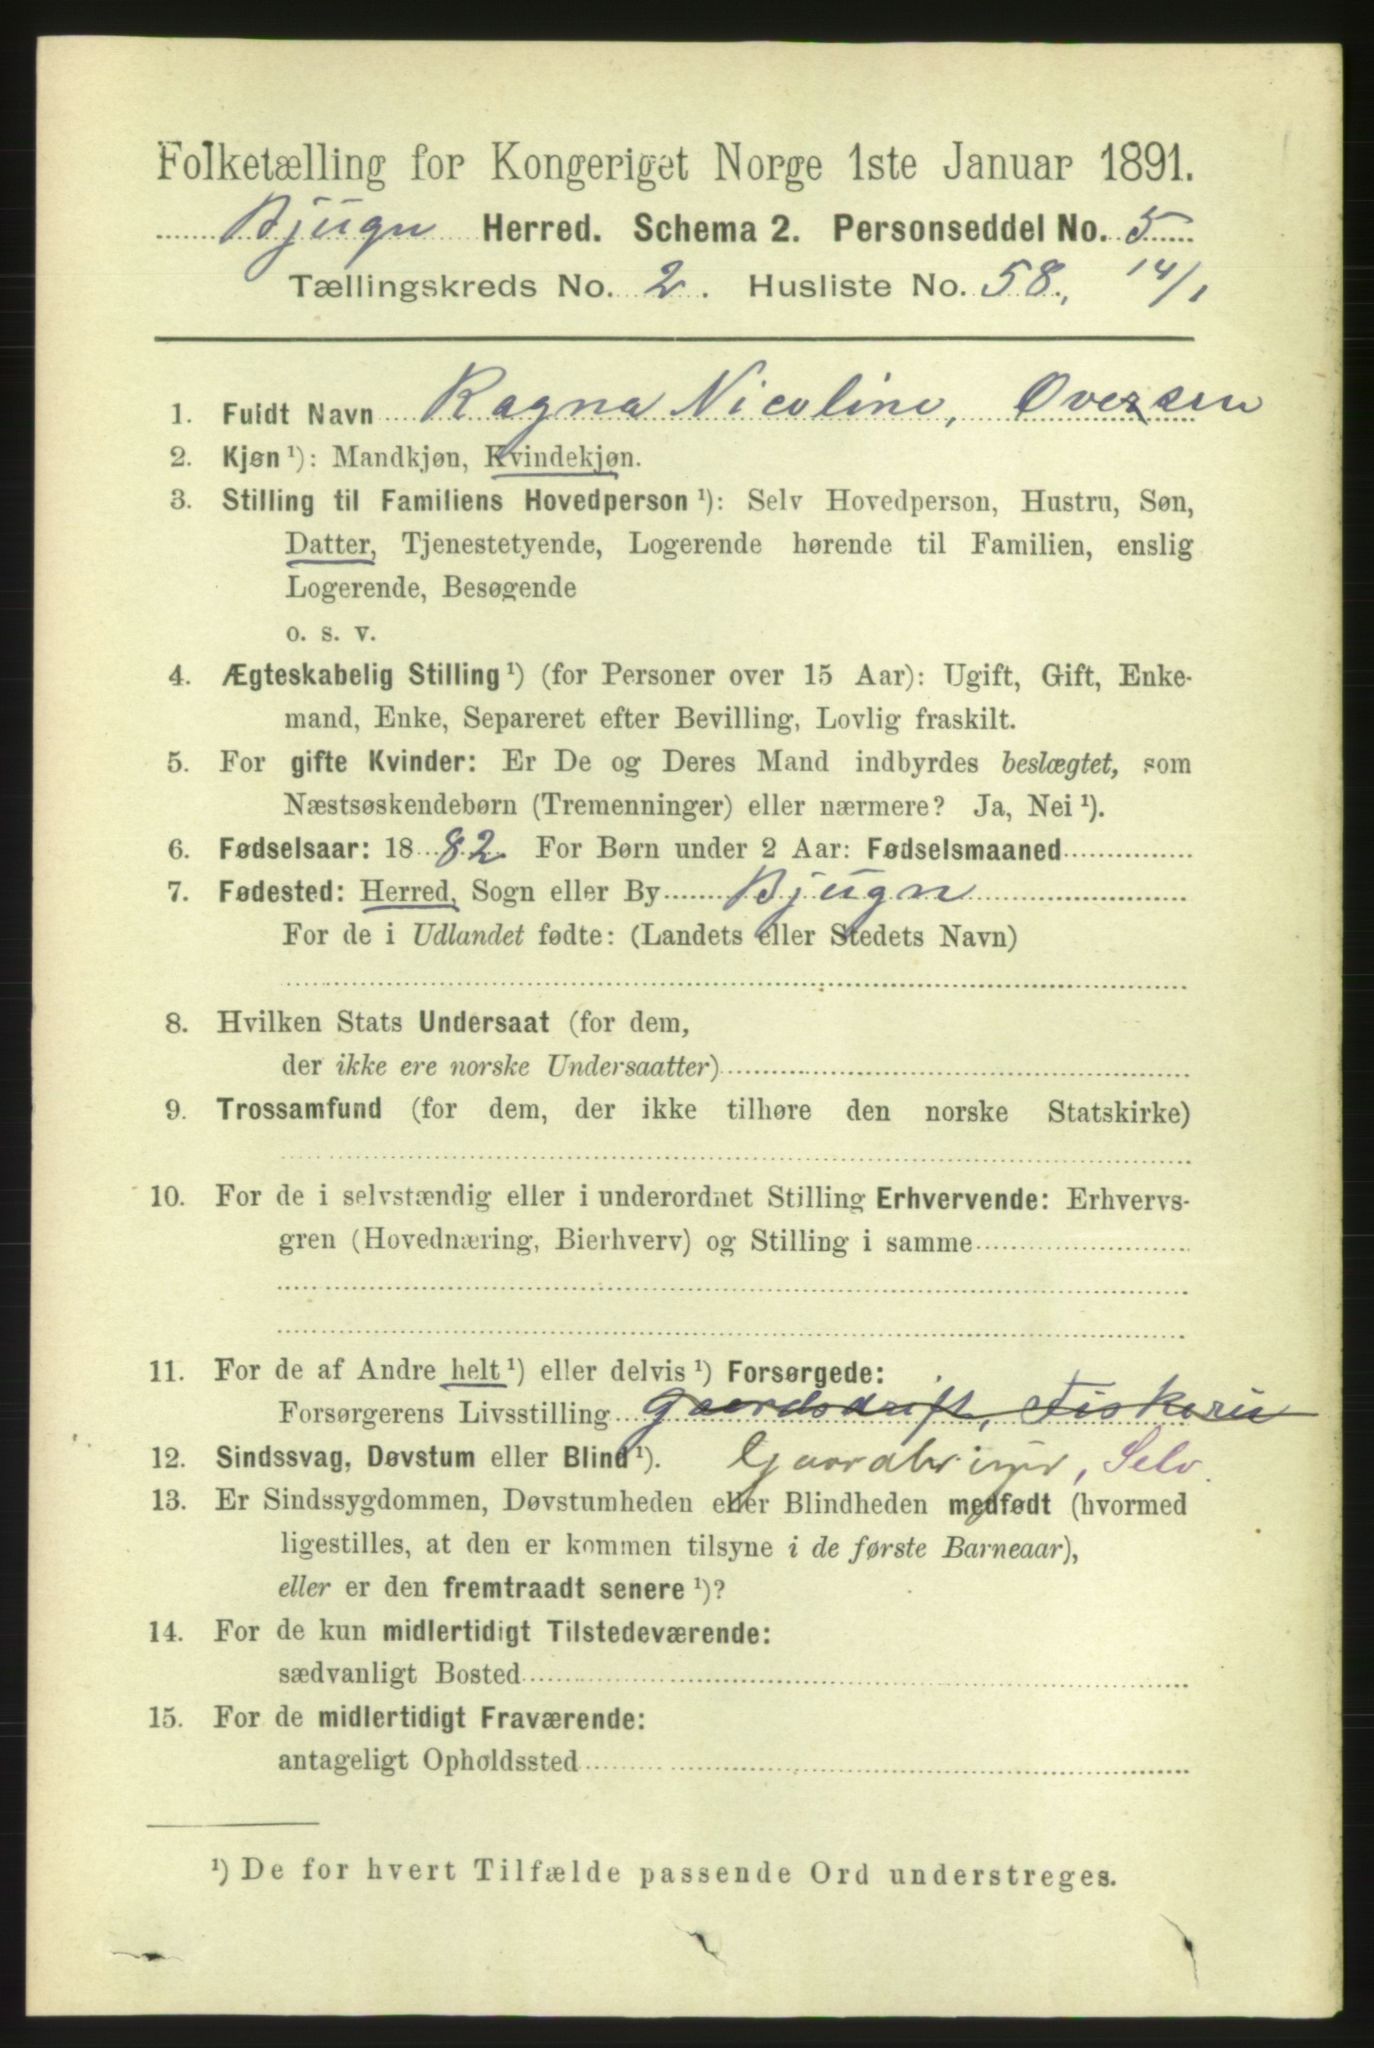 Folketælling for Kongeriget Norge 1ste Januar 1891.
Bjugn Herred. Schema 2. Personseddel No. 5
Tællingskreds No. 2. Husliste No. 58, 14/1
1. Fuldt Navn Ragna Nicoline, Ovesen
2. Kjøn ¹): Mandkjøn, Kvindekjøn.
3. Stilling til Familiens Hovedperson ¹): Selv Hovedperson, Hustru, Søn,
Datter, Tjenestetyende, Logerende hørende til Familien, enslig
Logerende, Besøgende
o. s. v.
4. Ægteskabelig Stilling ¹) (for Personer over 15 Aar): Ugift, Gift, Enke-
mand, Enke, Separeret efter Bevilling, Lovlig fraskilt.
5. For gifte Kvinder: Er De og Deres Mand indbyrdes beslægtet, som
Næstsøskendebørn (Tremenninger) eller nærmere? Ja, Nei ¹).
6. Fødselsaar: 1882 For Børn under 2 Aar: Fødselsmaaned
7. Fødested: Herred, Sogn eller By Bjugn
For de i Udlandet fødte: (Landets eller Stedets Navn)
8. Hvilken Stats Undersaat (for dem,
der ikke ere norske Undersaatter)
9. Trossamfund (for dem, der ikke tilhøre den norske Statskirke)
10. For de i selvstændig eller i underordnet Stilling Erhvervende: Erhvervs-
gren (Hovednæring, Bierhverv) og Stilling i samme
11. For de af Andre helt ¹) eller delvis ¹) Forsørgede:
Forsørgerens Livsstilling Gaardsdrift, Fiskeri
12. Sindssvag, Døvstum eller Blind ¹). Gaardbruger, Selv.
13. Er Sindssygdommen, Døvstumheden eller Blindheden medfødt (hvormed
ligestilles, at den er kommen tilsyne i de første Barneaar),
eller er den fremtraadt senere ¹)?
14. For de kun midlertidigt Tilstedeværende:
sædvanligt Bosted
15. For de midlertidigt Fraværende:
antageligt Opholdssted
¹) De for hvert Tilfælde passende Ord understreges.